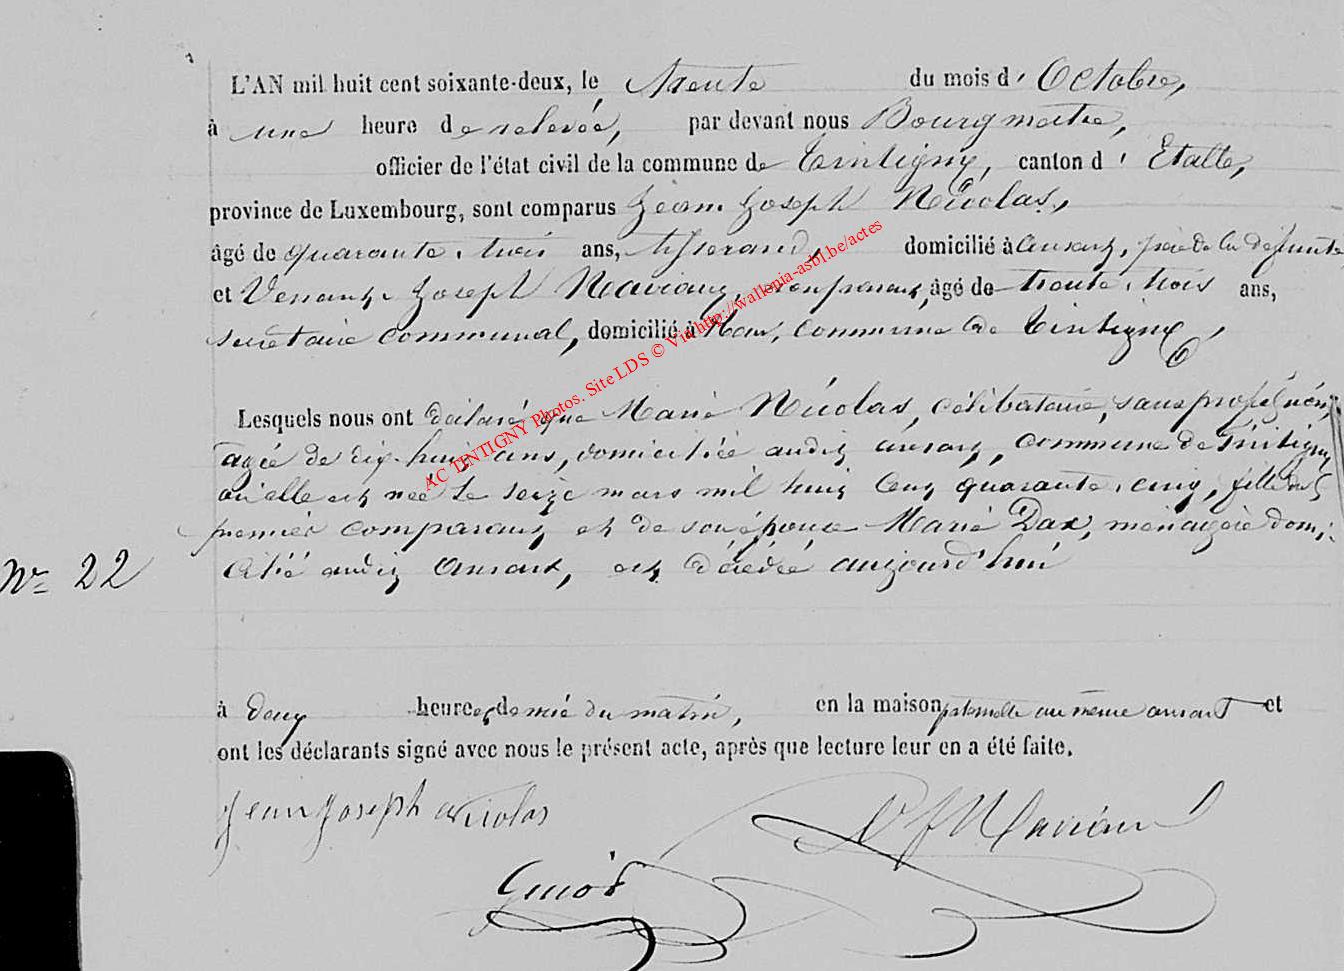 L'AN mil huit cent soixante-deux, le trente du mois d' Octobre,
à une heure de relevée, par devant nous Bourgmestre,
officier de l'état civil de la commune de Tintigny, canton d' Etalle,
province de Luxembourg, sont comparus Jean Joseph Nicolas,
âgé de quarante-trois ans, tisserand, domicilié à ansart, père de la défunte
et Venant Joseph Maviaux, non parent, âgé de trente-trois ans,
secrétaire communal, domicilié à Han, commune de Tintigny,
Lesquels nous ont déclaré que Marie Nicolas, célibataire, sans profession
agée de dix-huit ans, domiciliée audit ansart, commune de Tintigny
où elle est née le seize mars mil huit cent quarante-cinq, fille du
premier comparant et de son épouse Marie Dax, ménagère domi-
ciliée audit ansart, est décédée aujourd'hui
N° 22
à deux heures et demie du matin, en la maison paternelle au même ansart et
ont les déclarants signé avec nous le présent acte, après que lecture leur en a été faite.
Jean Joseph Nicolas
VJMaviaux
Guiot
AC TINTIGNY Photos. Site LDS © Via http://wallonia-asbl.be/actes